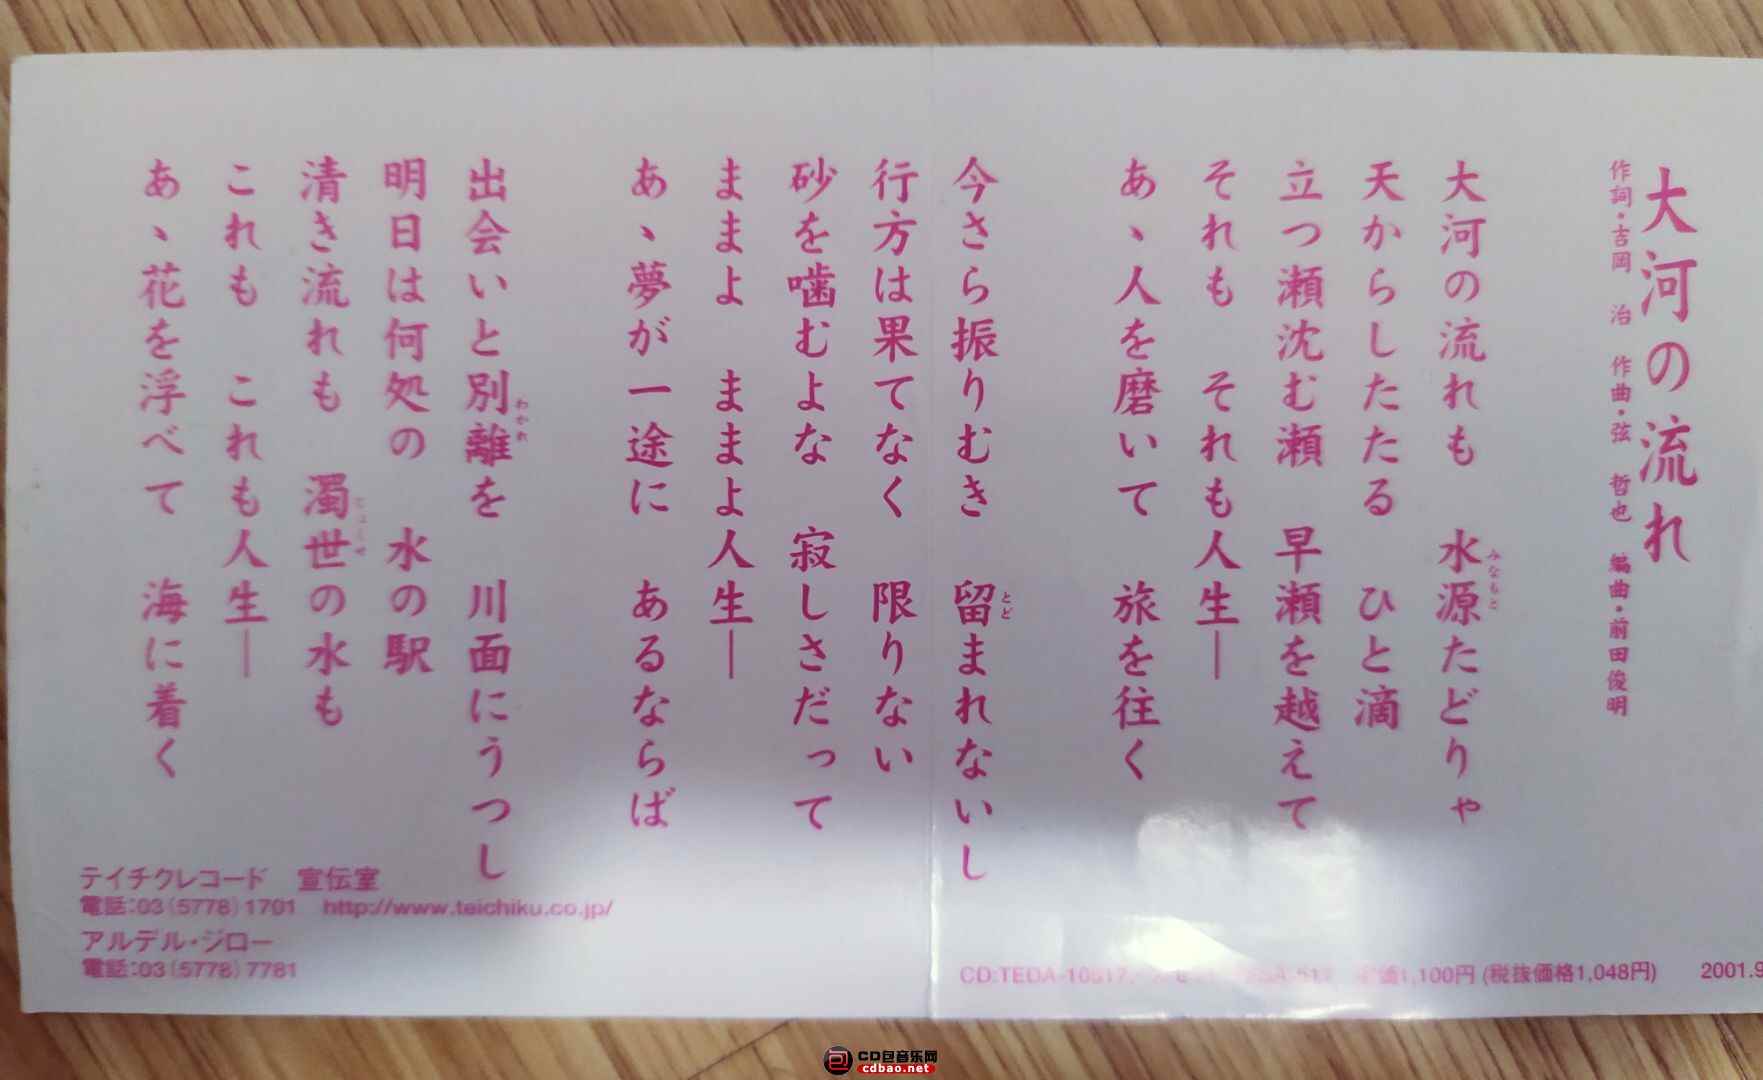 大河の流れ
作詞・吉岡 治 作曲・弦 哲也 編曲・前田俊明
大河の流れも 水源たどりゃ
みなもと
天からしたたる ひと滴
立つ瀬沈む瀬 早瀬を越えて
それも それも人生―
あゝ人を磨いて 旅を往く
今さら振りむき 留まれないし
とど
行方は果てなく 限りない
砂を噛むよな 寂しさだって
ままよ ままよ人生―
あゝ夢が一途に あるならば
出会いと別離を 川面にうつし
わかれ
明日は何処の 水の駅
清き流れも 濁世の水も
これも これも人生―
あゝ花を浮べて 海に着く
テイチクレコード 宣伝室
電話:03(5778)1701 http://www.teichiku.co.jp/
アルデル・ジロー
電話:03(5778)7781
CD:TEDA-10517 1,100円(税抜価格1,048円) 2001.9
CD包音乐网
cdbao.net